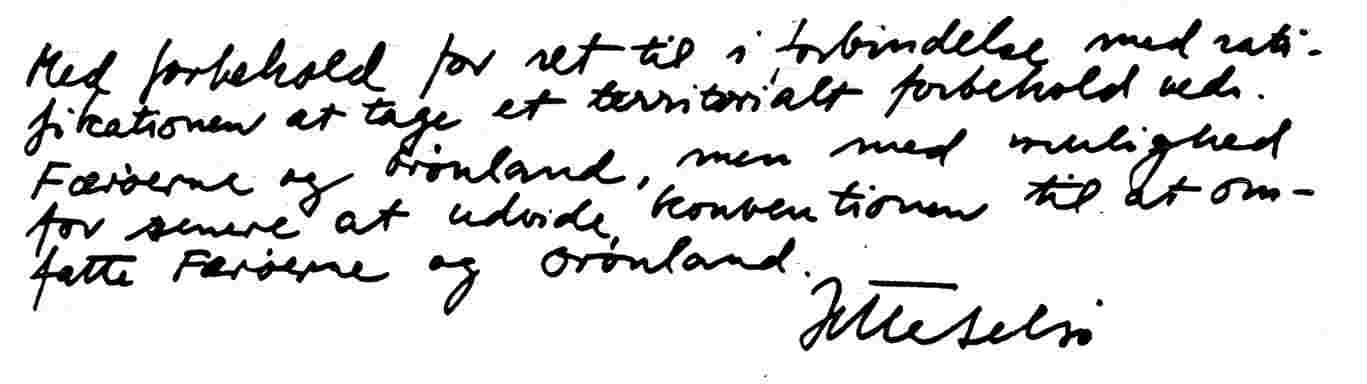 Med forbehold for ret til i forbindelse med rati-
fikationen at tage et territorialt forbehold vedr.
Færøerne og Grönland, men med mulighed
for senere at udvide konventionen til at om-
fatte Færøerne og Grönland.